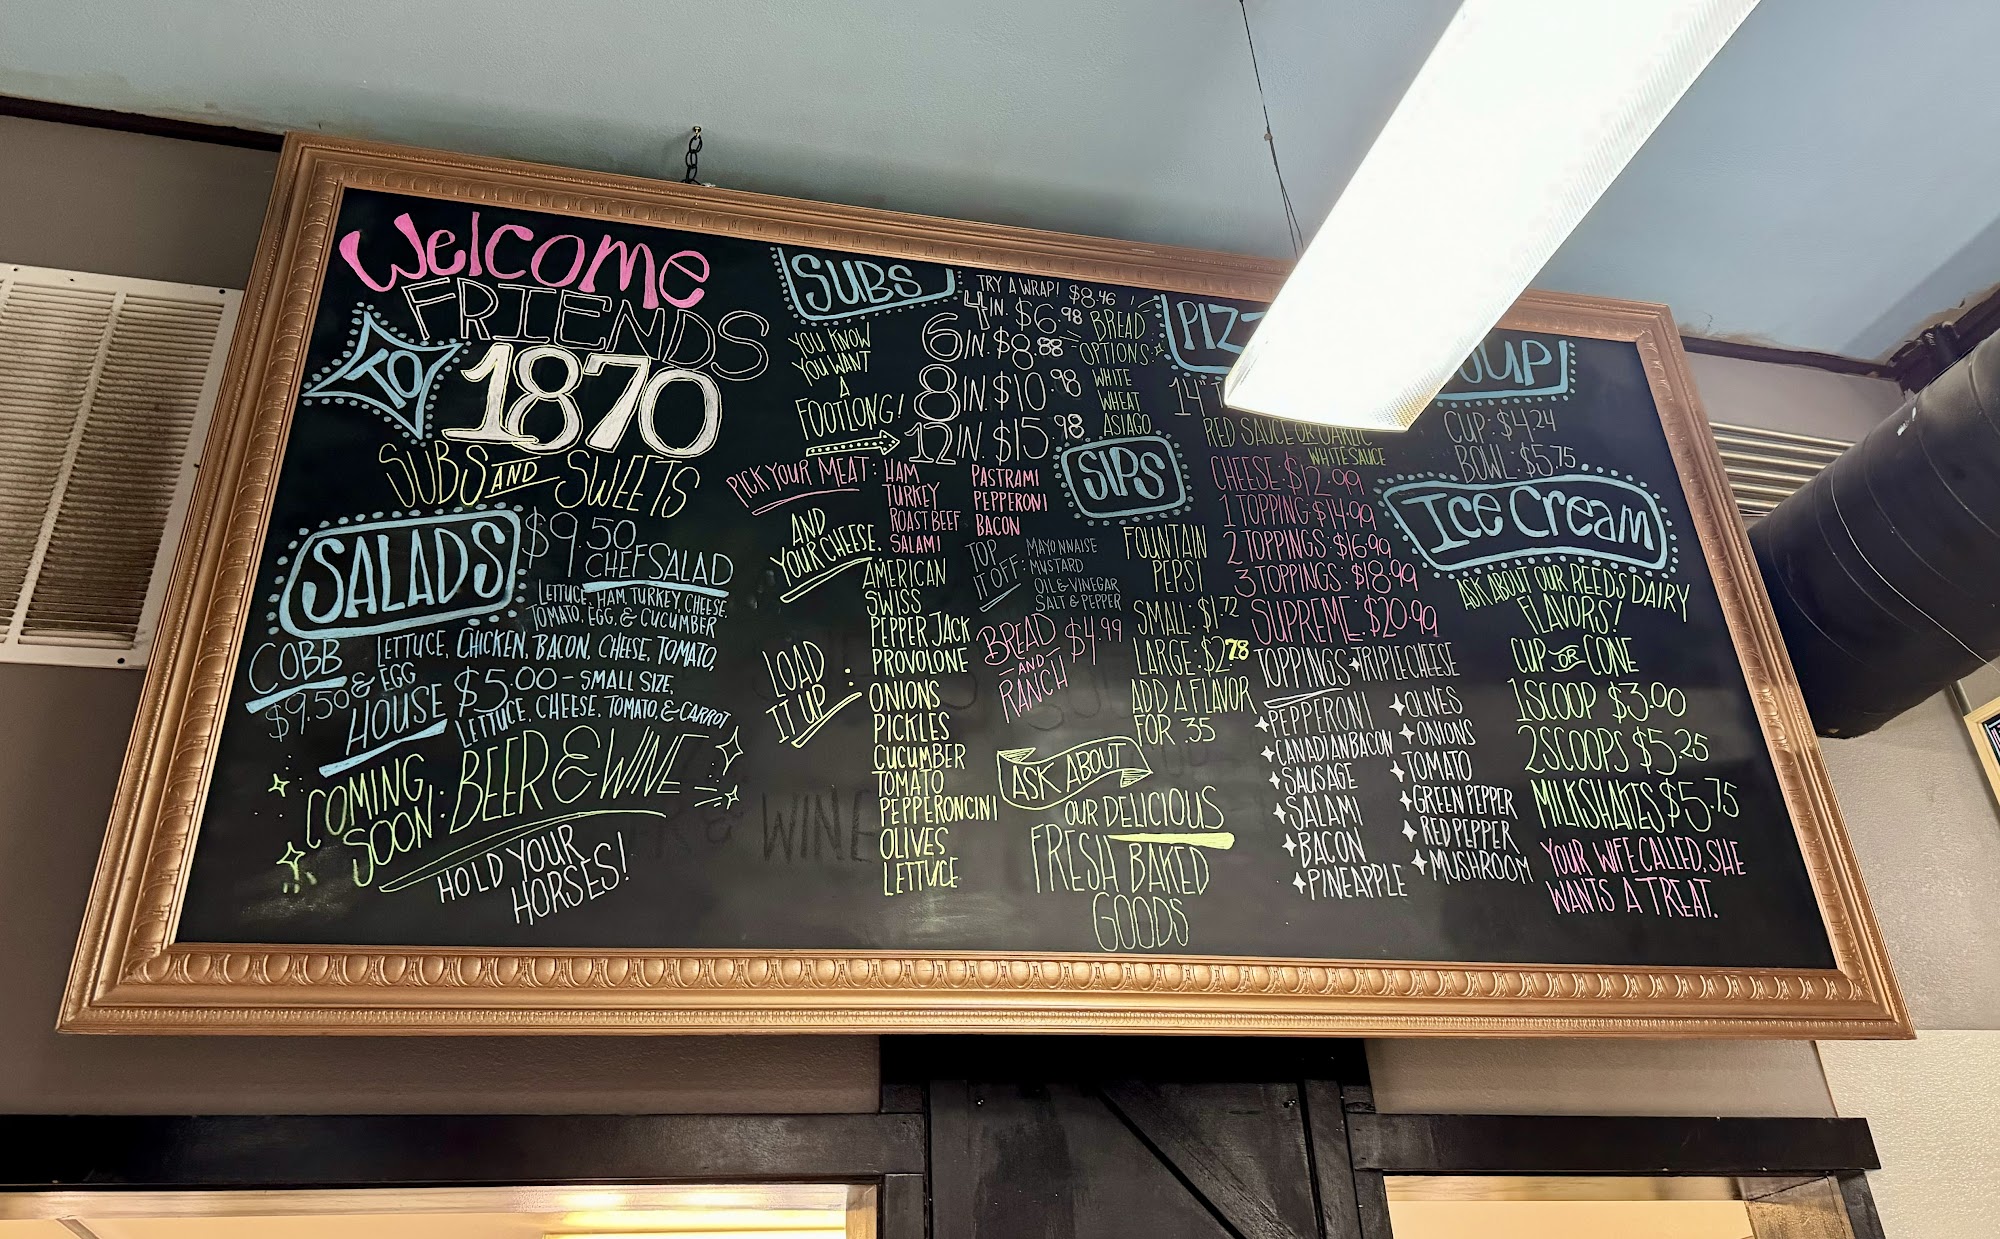 Welcome
FRIENDS
TO
1870
SUBS AND SWEETS
SALADS
$9.50
CHEF SALAD
LETTUCE, HAM, TURKEY, CHEESE,
TOMATO, EGG, & CUCUMBER
COBB
$9.50
LETTUCE, CHICKEN, BACON, CHEESE, TOMATO,
& EGG
HOUSE $5.00 - SMALL SIZE,
LETTUCE, CHEESE, TOMATO, & CARROT
COMING
SOON: BEER & WINE
HOLD YOUR
HORSES!
SUBS
TRY A WRAP! $8.46
4 IN. $6.98
6 IN. $8.88
8 IN. $10.98
12 IN. $15.98
YOU KNOW
YOU WANT
A
FOOTLONG!
BREAD
OPTIONS
WHITE
WHEAT
ASIAGO
PICK YOUR MEAT:
HAM
TURKEY
ROAST BEEF
SALAMI
PASTRAMI
PEPPERONI
BACON
AND
YOUR CHEESE.
AMERICAN
SWISS
PEPPER JACK
PROVOLONE
TOP
IT OFF:
MAYONNAISE
MUSTARD
OIL & VINEGAR
SALT & PEPPER
LOAD
IT UP:
ONIONS
PICKLES
CUCUMBER
TOMATO
PEPPERONCINI
OLIVES
LETTUCE
BREAD
AND
RANCH
$4.99
SIPS
FOUNTAIN
PEPSI
SMALL: $1.72
LARGE: $2.78
ADD A FLAVOR
FOR .35
ASK ABOUT
OUR DELICIOUS
FRESH BAKED
GOODS
PIZ
14"
RED SAUCE OR GARLIC
WHITE SAUCE
CHEESE: $12.99
1 TOPPING: $14.99
2 TOPPINGS: $16.99
3 TOPPINGS: $18.99
SUPREME: $20.99
TOPPINGS
TRIPLE CHEESE
PEPPERONI
CANADIAN BACON
SAUSAGE
SALAMI
BACON
PINEAPPLE
OLIVES
ONIONS
TOMATO
GREEN PEPPER
RED PEPPER
MUSHROOM
OUP
CUP: $4.24
BOWL: $5.75
Ice Cream
ASK ABOUT OUR REED'S DAIRY
FLAVORS!
CUP OR CONE
1 SCOOP $3.00
2 SCOOPS $5.25
MILKSHAKES $5.75
YOUR WIFE CALLED, SHE
WANTS A TREAT.
WINE